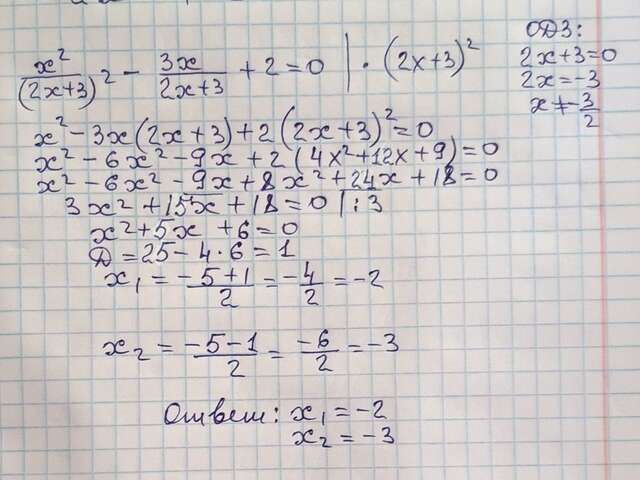 x²/(2x+3)² - 3x/(2x+3) + 2 = 0 | · (2x+3)²
ОДЗ:
2x+3=0
2x=-3
x≠-3/2
x² - 3x(2x+3) + 2(2x+3)² = 0
x² - 6x² - 9x + 2(4x²+12x+9) = 0
x² - 6x² - 9x + 8x² + 24x + 18 = 0
3x² + 15x + 18 = 0 | : 3
x² + 5x + 6 = 0
D = 25 - 4·6 = 1
x₁ = (-5+1)/2 = -4/2 = -2
x₂ = (-5-1)/2 = -6/2 = -3
Ответ: x₁ = -2
x₂ = -3